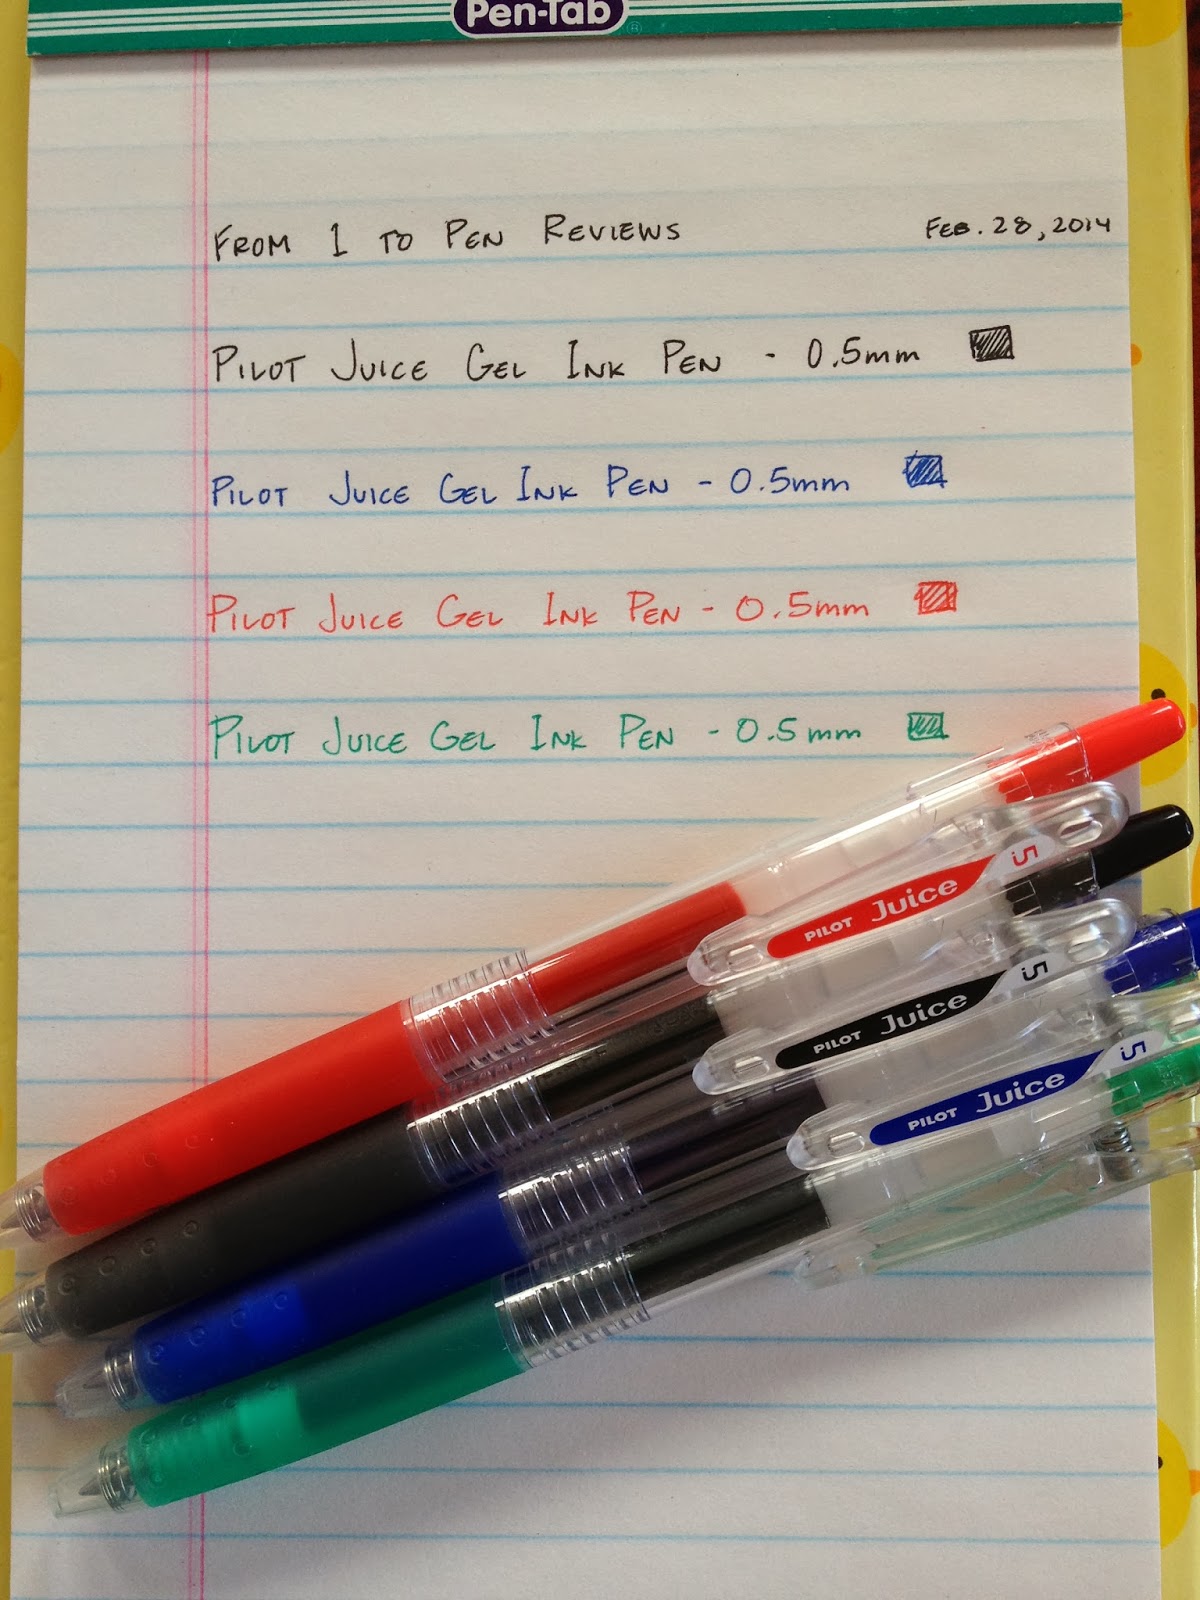 Pen-Tab ®
FROM 1 TO PEN REVIEWS FEB. 28, 2014
PILOT JUICE GEL INK PEN - 0.5mm
PILOT JUICE GEL INK PEN - 0.5mm
PILOT JUICE GEL INK PEN - 0.5mm
PILOT JUICE GEL INK PEN - 0.5mm
PILOT Juice 5
PILOT Juice 5
PILOT Juice 5